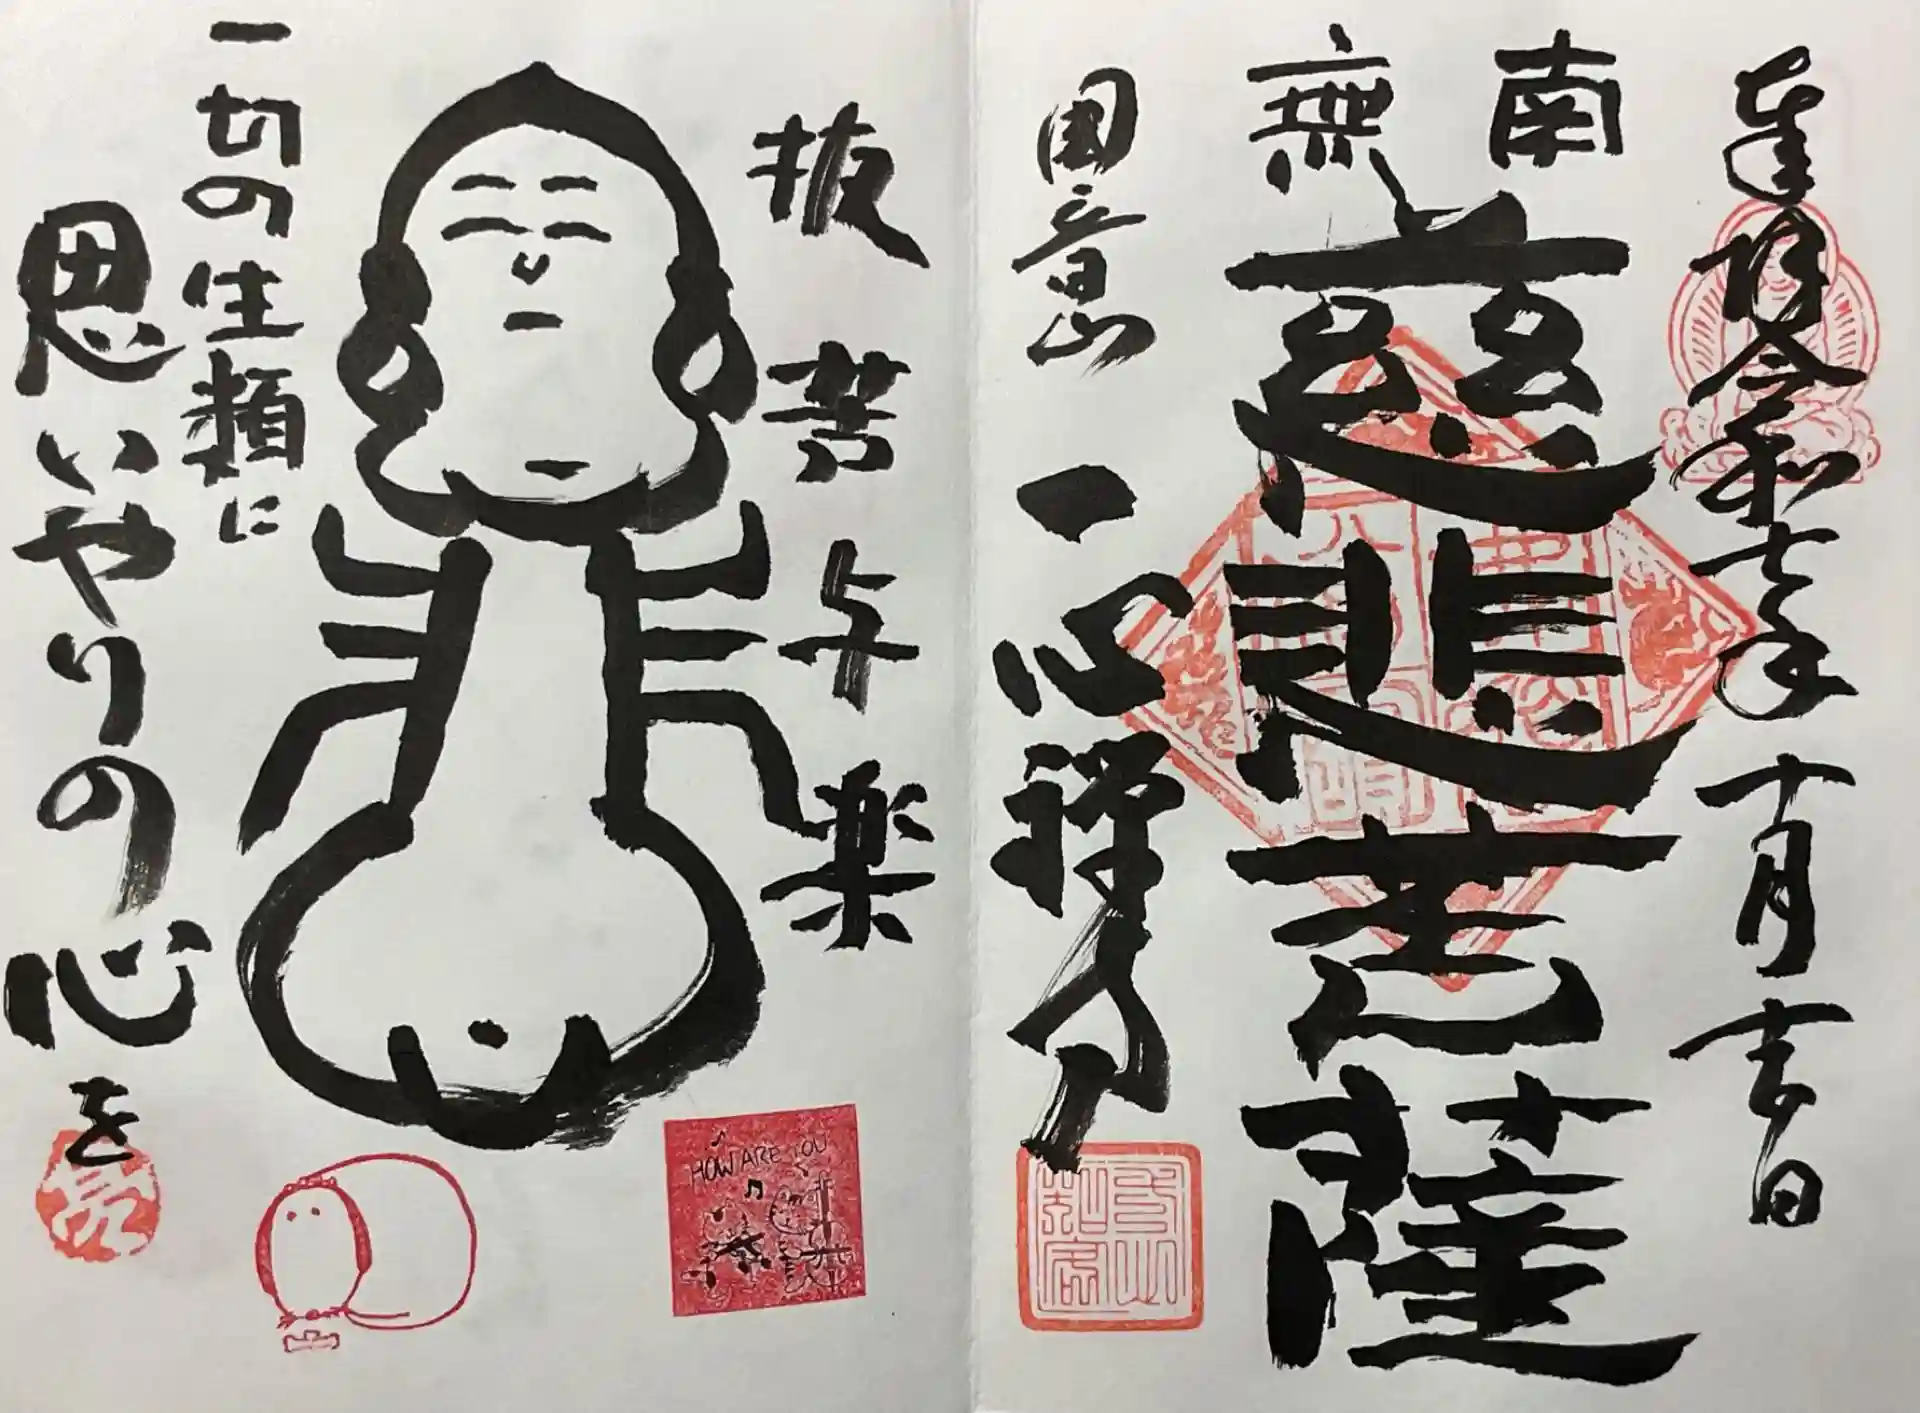 奉拝令和七年十月吉日
南無
慈悲菩薩
圓音山
一心禅寺
抜苦与楽
一切の生類に
思いやりの心を
HOW ARE YOU